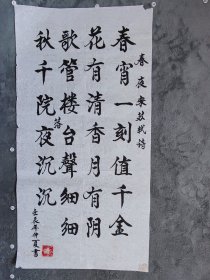 春夜 宋苏轼诗
春宵一刻值千金
花有清香月有阴
歌管楼台聲细细
秋千院落夜沉沉
壬辰年仲夏書